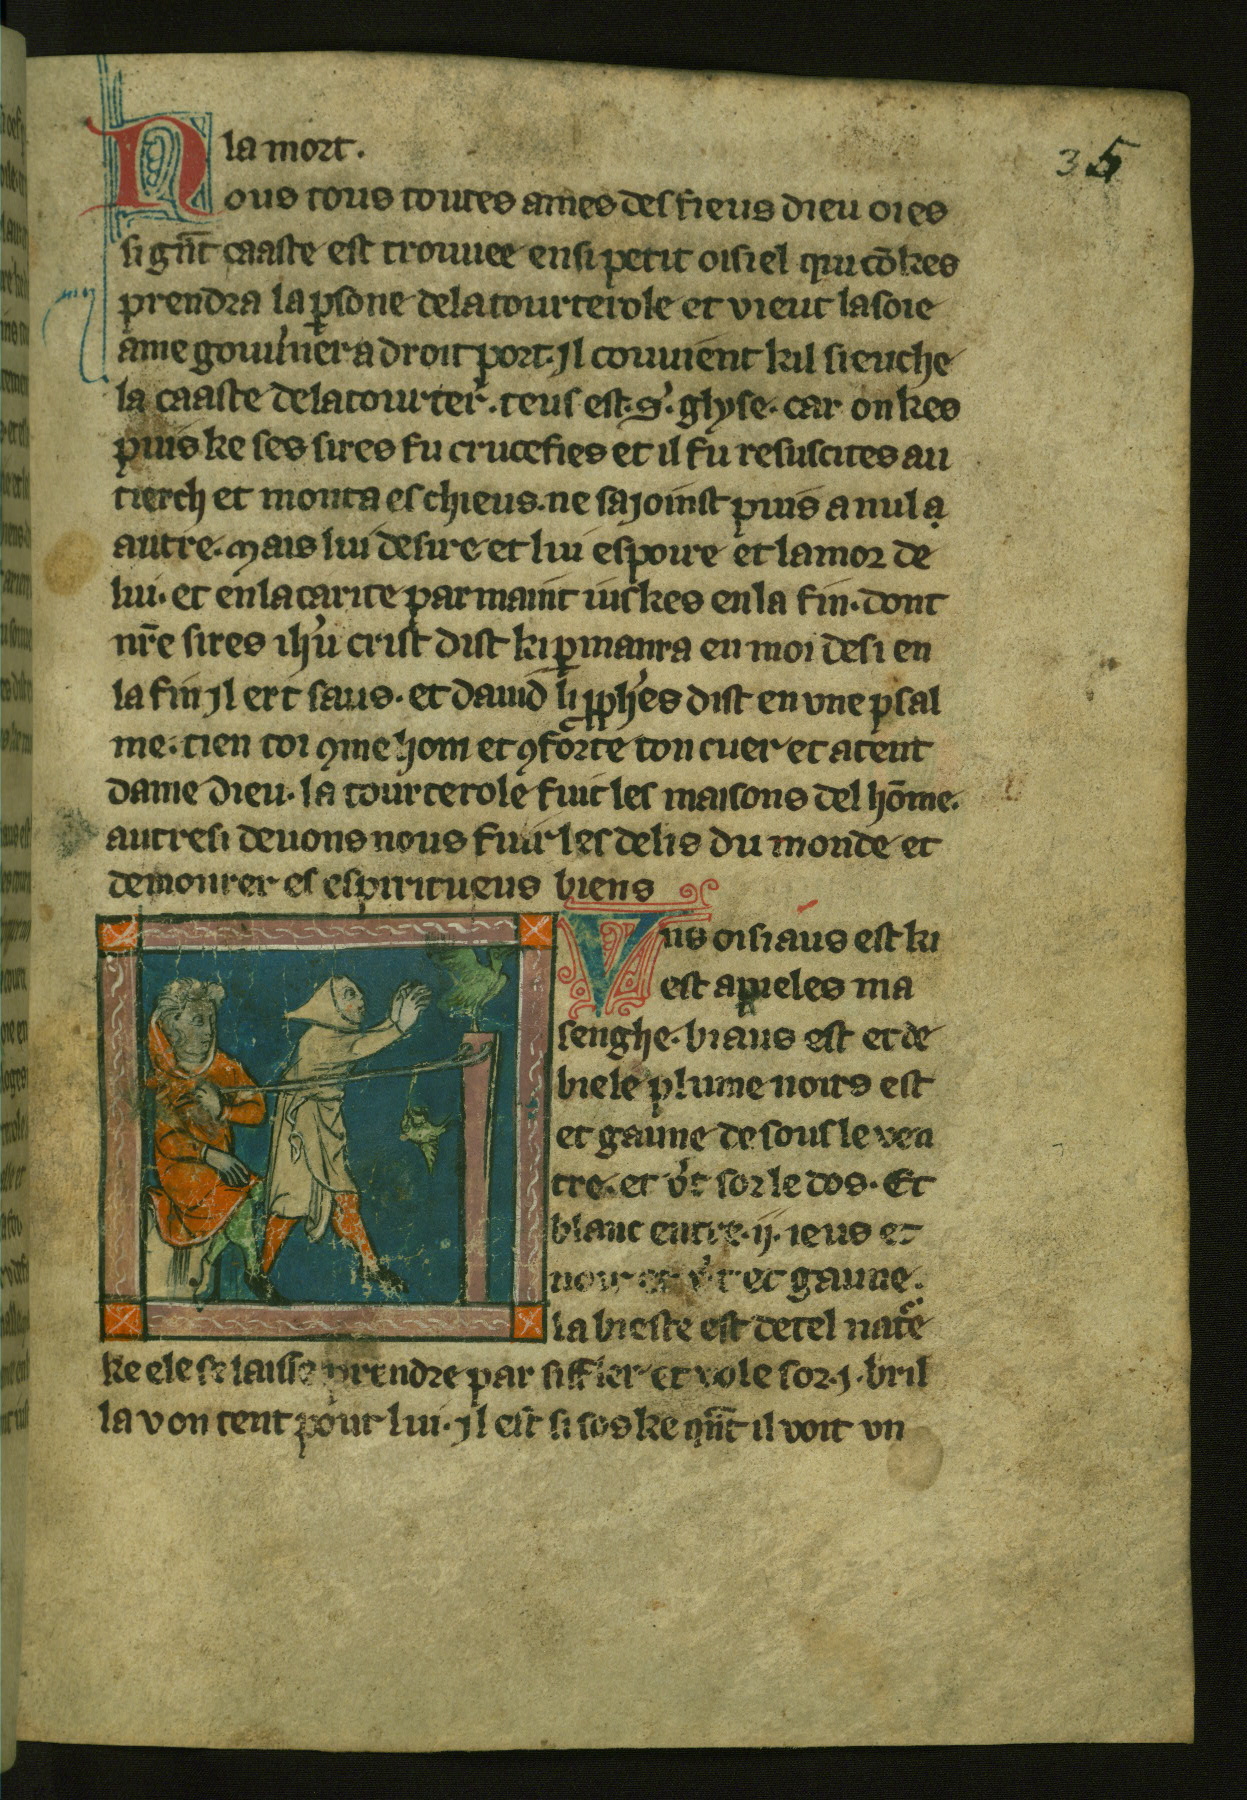 35
la mort.
Nous tous toutes ames des fieus dieu oies
si gn̄t caaste est trouuee en si petit oisiel qui cōkes
prendra la ꝑsone dela tourterole et vieut la soie
ame gouu'ner a droit port. Jl couuient kil sieuche
la caaste dela tourter'. teus est. S'. glyse. car onkes
puis ke ses sires fu crucefies et il fu resuscites au
tierch et monta es chieus. ne sajoinst puis a nul a
autre. Mais lui desire et lui espoire et lamor de
lui. et en la carite parmaint iuskes en la fin. dont
nr̄e sires ih'u crist dist ki ꝑmanra en moi desi en
la fin Jl ert saus. et dauid li ꝓph'es dist en vne psal
me. tien toi ꝯme hom et ꝯforte ton cuer et atent
dame dieu. la tourterole fuit les maisons del hōme.
autresi deuons nous fuir les delis du monde et
demourer es espiritueus biens
Vns oisiaus est ki
est apieles ma
senghe. biaus est et de
biele plume noirs est
et gaune desous le ven
tre. et v't sor le dos. Et
blanc entre .ij. ieus et
noir et v't et gaune.
la bieste est de tel nat'e
ke ele se laisse prendre par siffler et vole sor .j. bril
la von tent pour lui. Jl est si sos ke qn̄t il voit vn